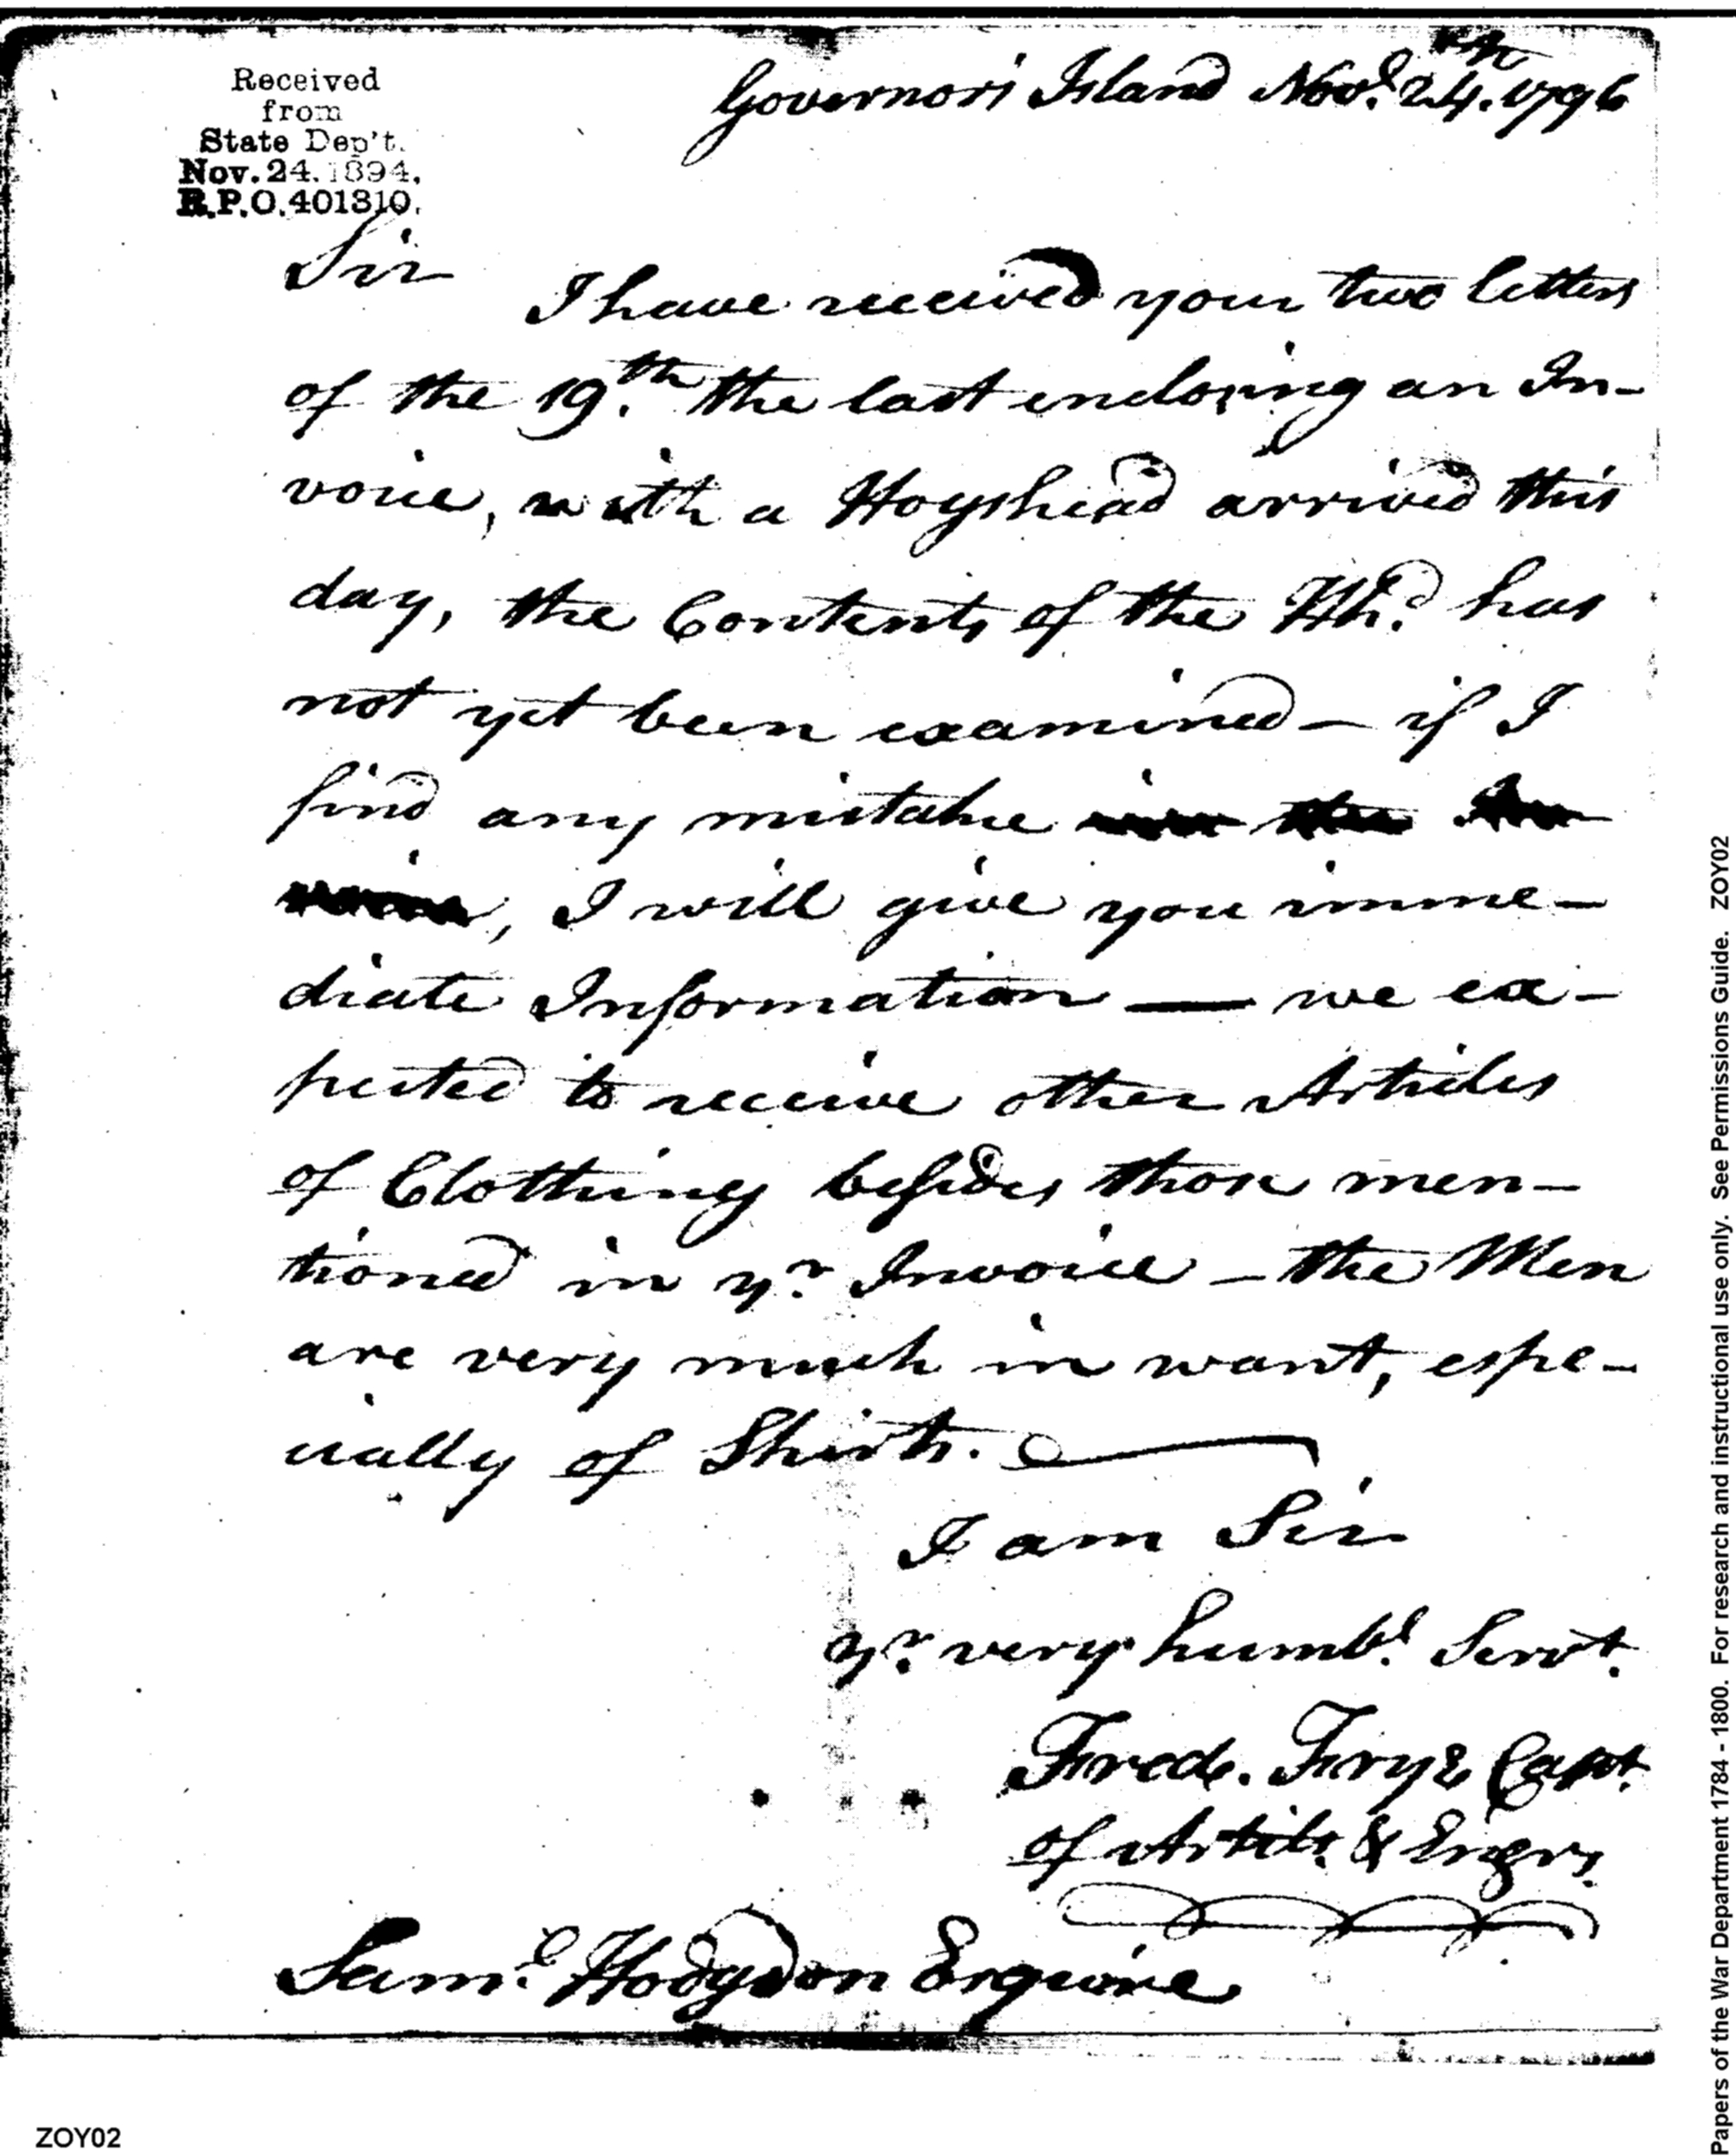 Received
from
State Dep't.
Nov. 24. 1894.
R.P.O. 401310.
Governors Island Novr. 24th. 1796
Sir
I have received your two letters
of the 19th. the last enclosing an In-
voice, with a Hogshead arrived this
day, the Contents of the Hhd. has
not yet been examined – if I
find any mistake in the In
voice, I will give you imme-
diate Information — we ex-
pected to receive other Articles
of Clothing besides those men-
tioned in yr. Invoice – the Men
are very much in want, espe-
cially of Shirts.
I am Sir
yr. very humbl. Servt.
Fredk. Frye Capt.
of Artils. & Engrs.
Saml. Hodgdon Esquire
ZOY02
Papers of the War Department 1784 - 1800. For research and instructional use only. See Permissions Guide. ZOY02